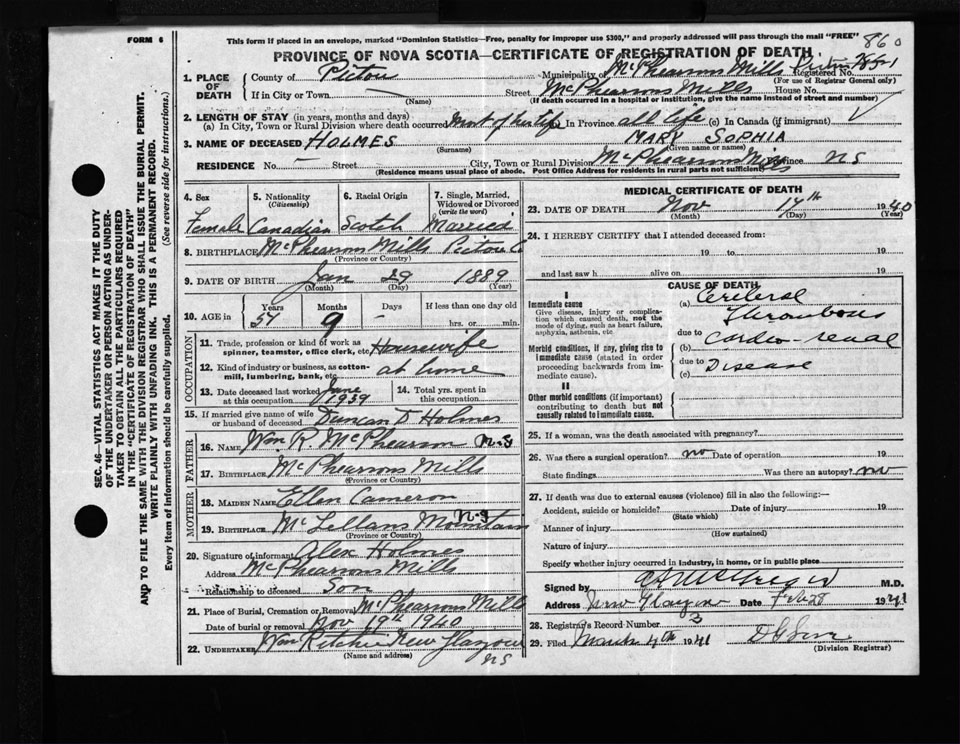 FORM 6
This form if placed in an envelope, marked "Dominion Statistics—Free, penalty for improper use $300," and properly addressed will pass through the mail "FREE"
860
PROVINCE OF NOVA SCOTIA—CERTIFICATE OF REGISTRATION OF DEATH
1. PLACE OF DEATH
County of Pictou Municipality of McPhearsons Mills Registered No.
(For use of Registrar General only)
If in City or Town — Street McPhearsons Mills House No.
(Name) (If death occurred in a hospital or institution, give the name instead of street and number)
2. LENGTH OF STAY (in years, months and days)
(a) In City, Town or Rural Division where death occurred most of her life (b) In Province all life (c) In Canada (if immigrant)
3. NAME OF DECEASED HOLMES MARY SOPHIA
(Surname) (Given name or names)
RESIDENCE No. — Street City, Town or Rural Division McPhearsons Mills Province NS
(Residence means usual place of abode. Post Office Address for residents in rural parts not sufficient)
4. Sex 5. Nationality (Citizenship) 6. Racial Origin 7. Single, Married, Widowed or Divorced (write the word)
Female Canadian Scotch Married
8. BIRTHPLACE McPhearsons Mills Pictou Co
(Province or Country)
9. DATE OF BIRTH Jan 29 1889
(Month) (Day) (Year)
10. AGE in Years Months Days If less than one day old
51 9 – hrs. or min.
OCCUPATION
11. Trade, profession or kind of work as spinner, teamster, office clerk, etc. Housewife
12. Kind of industry or business, as cotton-mill, lumbering, bank, etc. at home
13. Date deceased last worked at this occupation June 1939 14. Total yrs. spent in this occupation
15. If married give name of wife or husband of deceased Duncan D Holmes
FATHER
16. Name Wm. R. McPhearson N.S
17. Birthplace McPhearsons Mills
(Province or Country)
MOTHER
18. Maiden Name Ellen Cameron
19. Birthplace McLellans Mountain N.S
(Province or Country)
20. Signature of informant Alex Holmes
Address McPhearsons Mills
Relationship to deceased Son
21. Place of Burial, Cremation or Removal McPhearsons Mills
Date of burial or removal Nov 19th 1940
22. UNDERTAKER Wm Ritchie New Glasgow
(Name and address) NS
MEDICAL CERTIFICATE OF DEATH
23. DATE OF DEATH Nov 17th 1940
(Month) (Day) (Year)
24. I HEREBY CERTIFY that I attended deceased from:
19 to 19
and last saw h alive on 19
CAUSE OF DEATH
I
Immediate cause
Give disease, injury or complication which caused death, not the mode of dying, such as heart failure, asphyxia, asthenia, etc.
(a) Cerebral Thrombosis
due to
Morbid conditions, if any, giving rise to immediate cause (stated in order proceeding backwards from immediate cause).
(b) Cardio-renal
due to
(c) Disease
II
Other morbid conditions (if important) contributing to death but not causally related to immediate cause.
25. If a woman, was the death associated with pregnancy?
26. Was there a surgical operation? no Date of operation 19
State findings Was there an autopsy? no
27. If death was due to external causes (violence) fill in also the following:—
Accident, suicide or homicide? Date of injury 19
(State which)
Manner of injury
(How sustained)
Nature of injury
Specify whether injury occurred in industry, in home, or in public place
Signed by M.D.
Address New Glasgow Date Feb 28 1941
28. Registrar's Record Number 2
29. Filed March 4th 1941
(Division Registrar)
SEC. 46—VITAL STATISTICS ACT MAKES IT THE DUTY
OF THE UNDERTAKER OR PERSON ACTING AS UNDER-
TAKER TO OBTAIN ALL THE PARTICULARS REQUIRED
IN THE "CERTIFICATE OF REGISTRATION OF DEATH"
AND TO FILE THE SAME WITH THE DIVISION REGISTRAR WHO SHALL ISSUE THE BURIAL PERMIT.
WRITE PLAINLY WITH UNFADING INK. THIS IS A PERMANENT RECORD.
Every item of information should be carefully supplied. (See reverse side for instructions.)